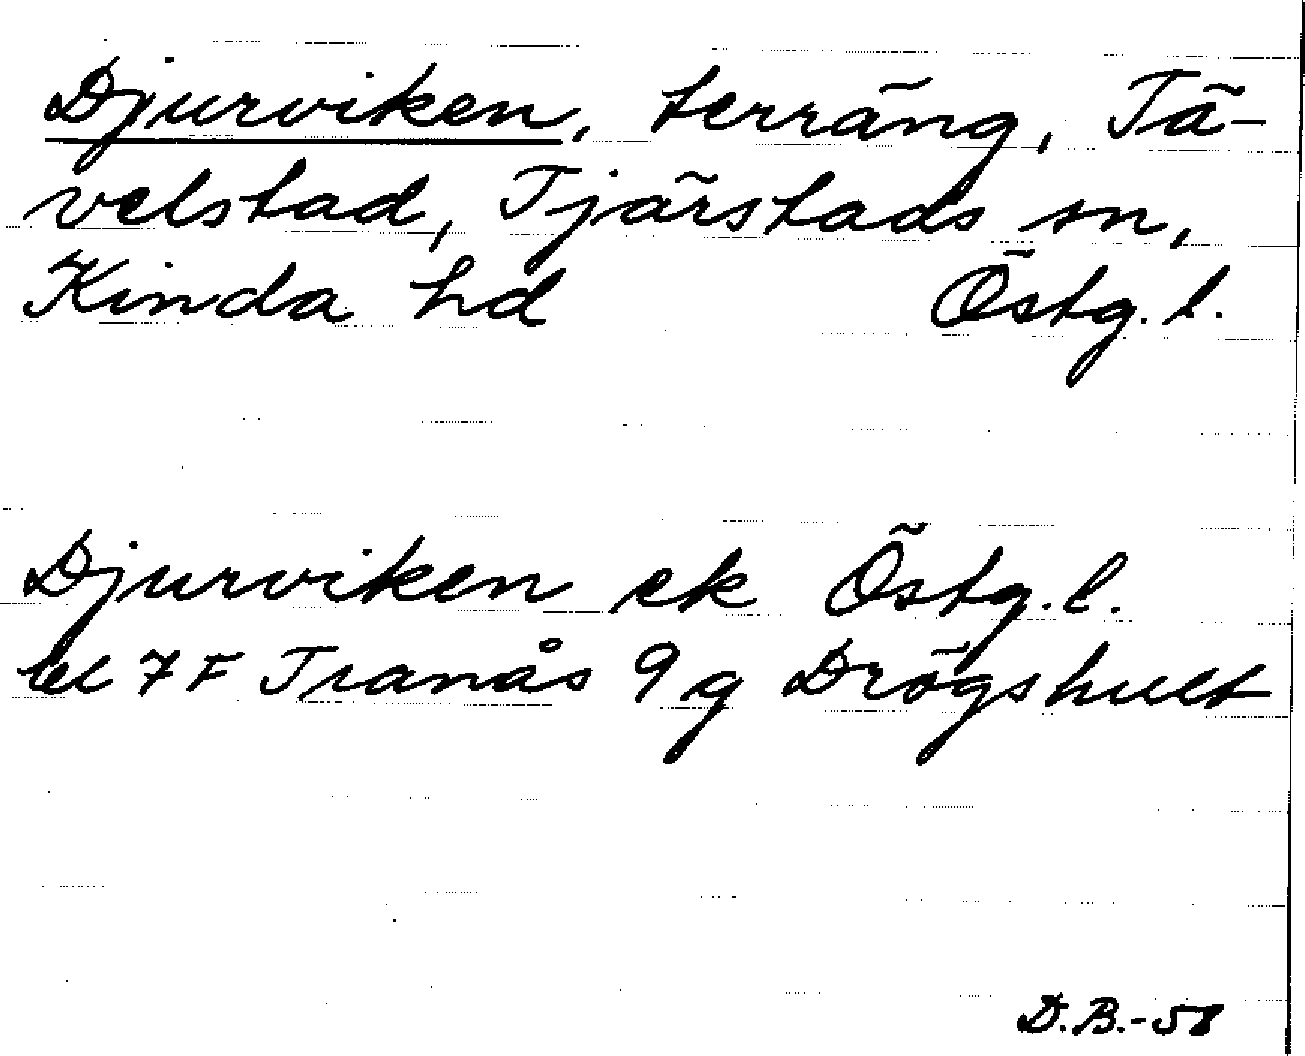 Djurviken, terräng, Tä-
velstad, Tjärstads sn,
Kinda hd Östg. l.
Djurviken ek Östg. l.
bl 7 F Tranås 9 g Drögshult
D.B.-58